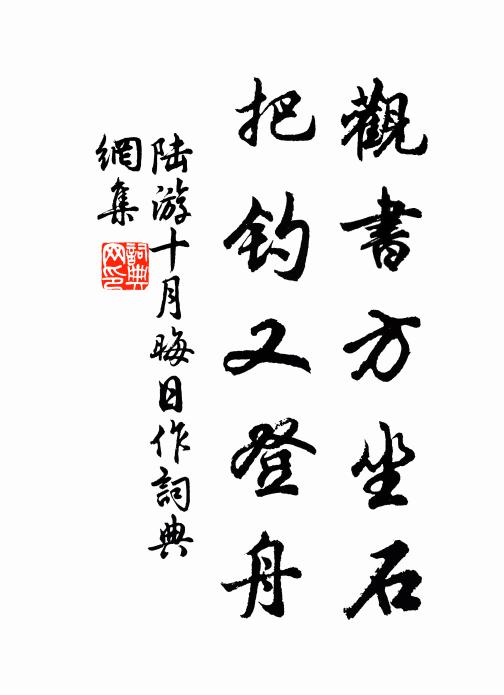 觀書方坐石
把钓又登舟
陆游十月晦日作詞典
網集
詞典
网印